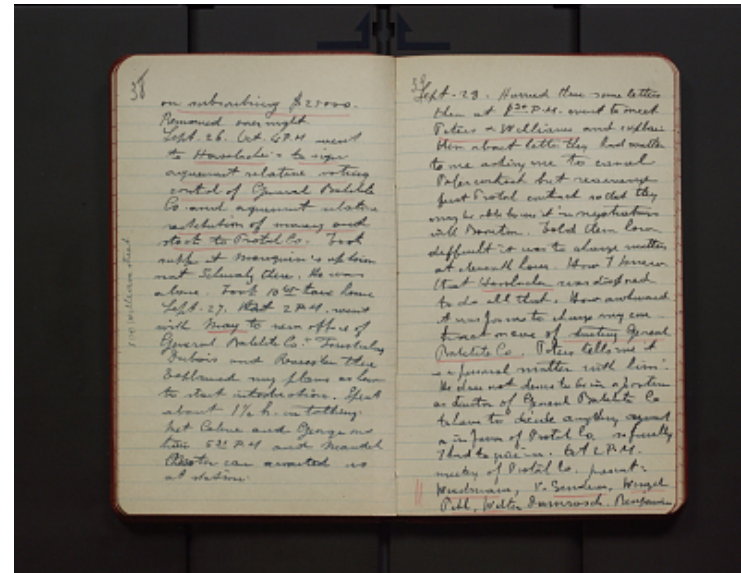 38
on subscribing $25000.
Remained overnight
Sept. 26. At 6 P.M. went
to Hasslacher's to sign
agreement relative voting
control of General Bakelite
Co. and agreement relative
restitution of money and
stock to Protal Co. Took
supper at Mouquin's up town
met Schwalz there. He was
alone. Took 10 train home
Sept. 27. 2 P.M. went
with May to new office of
General Bakelite Co.
Dubois and Rossester there
Explained my plans as how
to start introduction. Spent
about 1½ h. in talking.
Met Celine and George on
train 5 P.M. and Maudel
car awaited us
at station.
100 William Street
39
Sept. 28. Hurried thru some letters
then at P.M. went to meet
Peters & Williams and explain
them about letter they had written
to me asking me to cancel
contract but reserving
first Protal contract so that they
may be able to use it in negotiations
with Boonton. Told them how
difficult it was to change matters
at eleventh hour. How I knew
that Hasslacher was disposed
to do all that. How awkward
it was for me to change my con-
tract on eve of starting General
Bakelite Co. Peters tells me it
is a personal matter with him.
He does not desire to be in a position
as director of General Bakelite Co
to have to decide anything against
or in favor of Protal Co. so finally
I had to give in. At 2 P.M.
meeting of Protal Co. present:
Wiedmann, Wenzel
Walter Damrosch, Benjamin